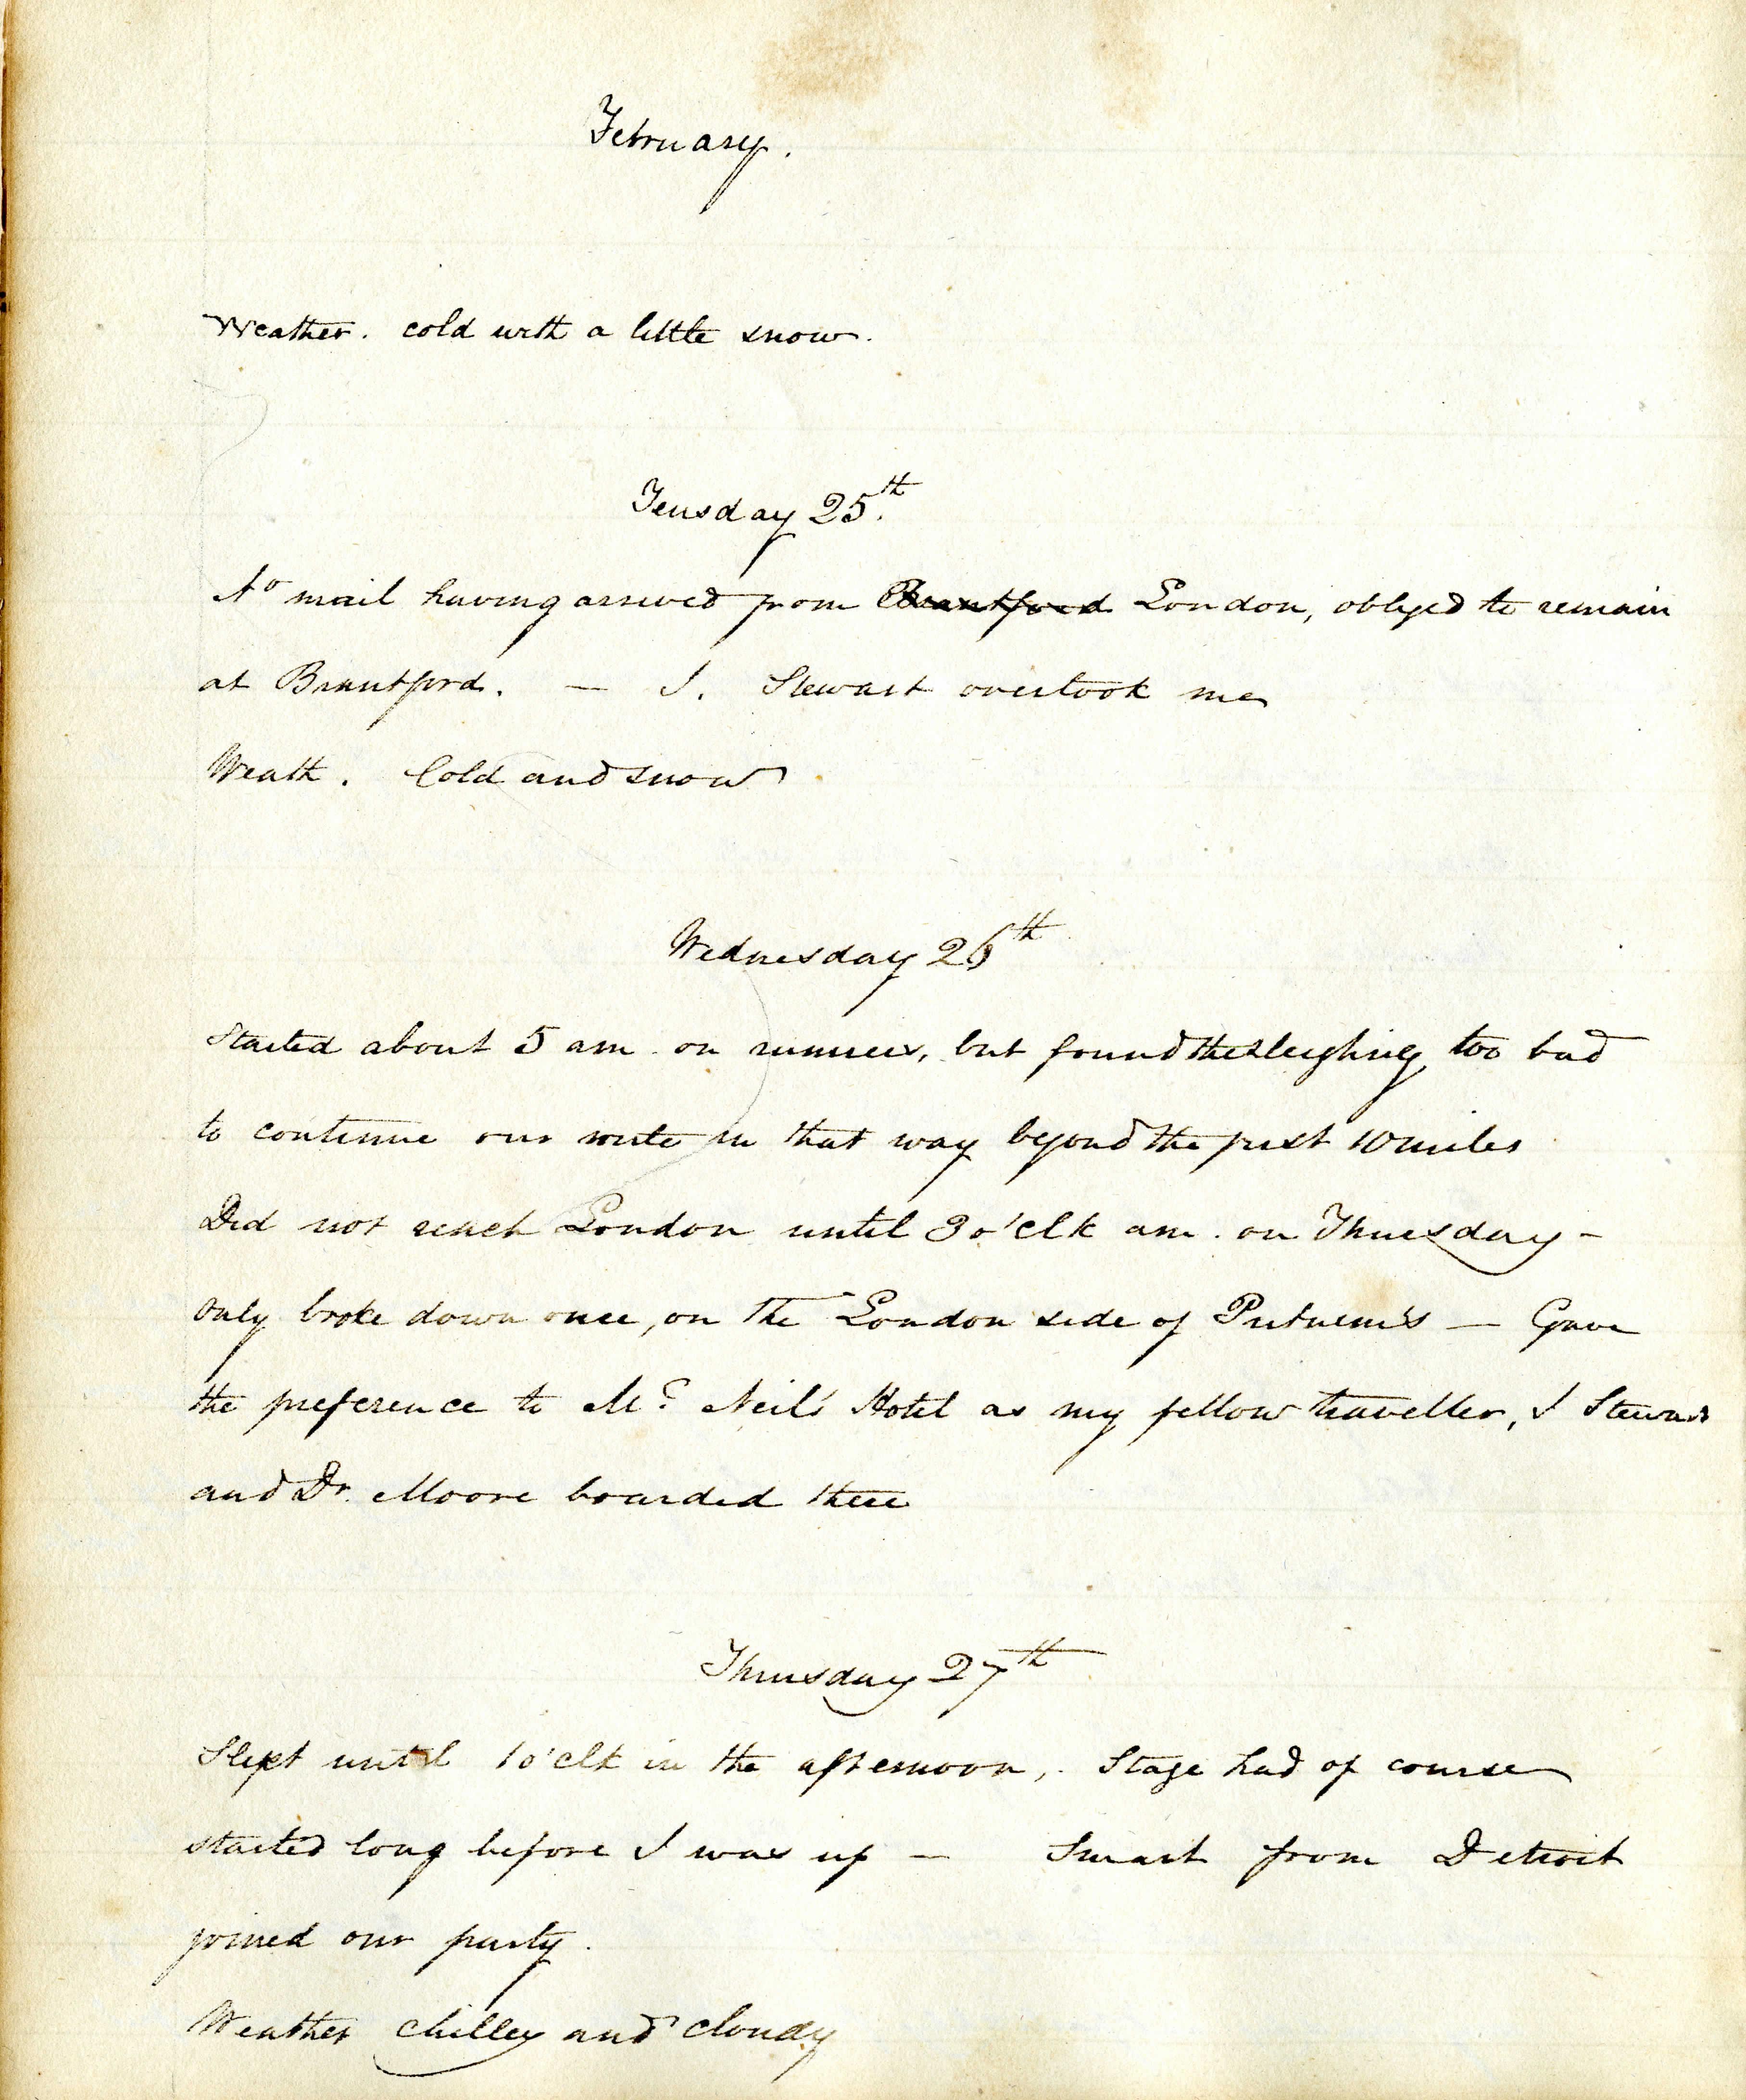 February.
Weather. cold with a little snow.
Teusday 25th.
No mail having arrived from Brantford London, obliged to remain
at Brantford. — J. Stewart overtook me
Weath. Cold and snow
Wednesday 26th
Started about 5 am. on runners, but found the sleighing too bad
to continue our route in that way beyond the first 10 miles
Did not reach London until 3 o'clk am. on Thursday -
only broke down once, on the London side of Putnem's — Gave
the preference to Mc Neil's Hotel as my fellow traveller, J Stewart
and Dr. Moore boarded there
Thursday 27th
Slept until 1 o'clk in the afternoon, Stage had of course
started long before I was up — Smart from Detroit
joined our party.
Weather chilley and cloudy